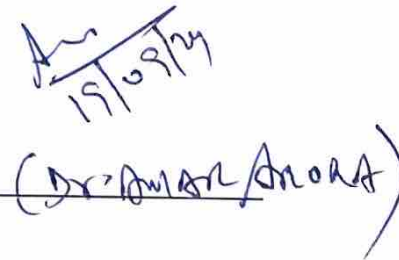 19/09/24
(Dr. AMAR ARORA)